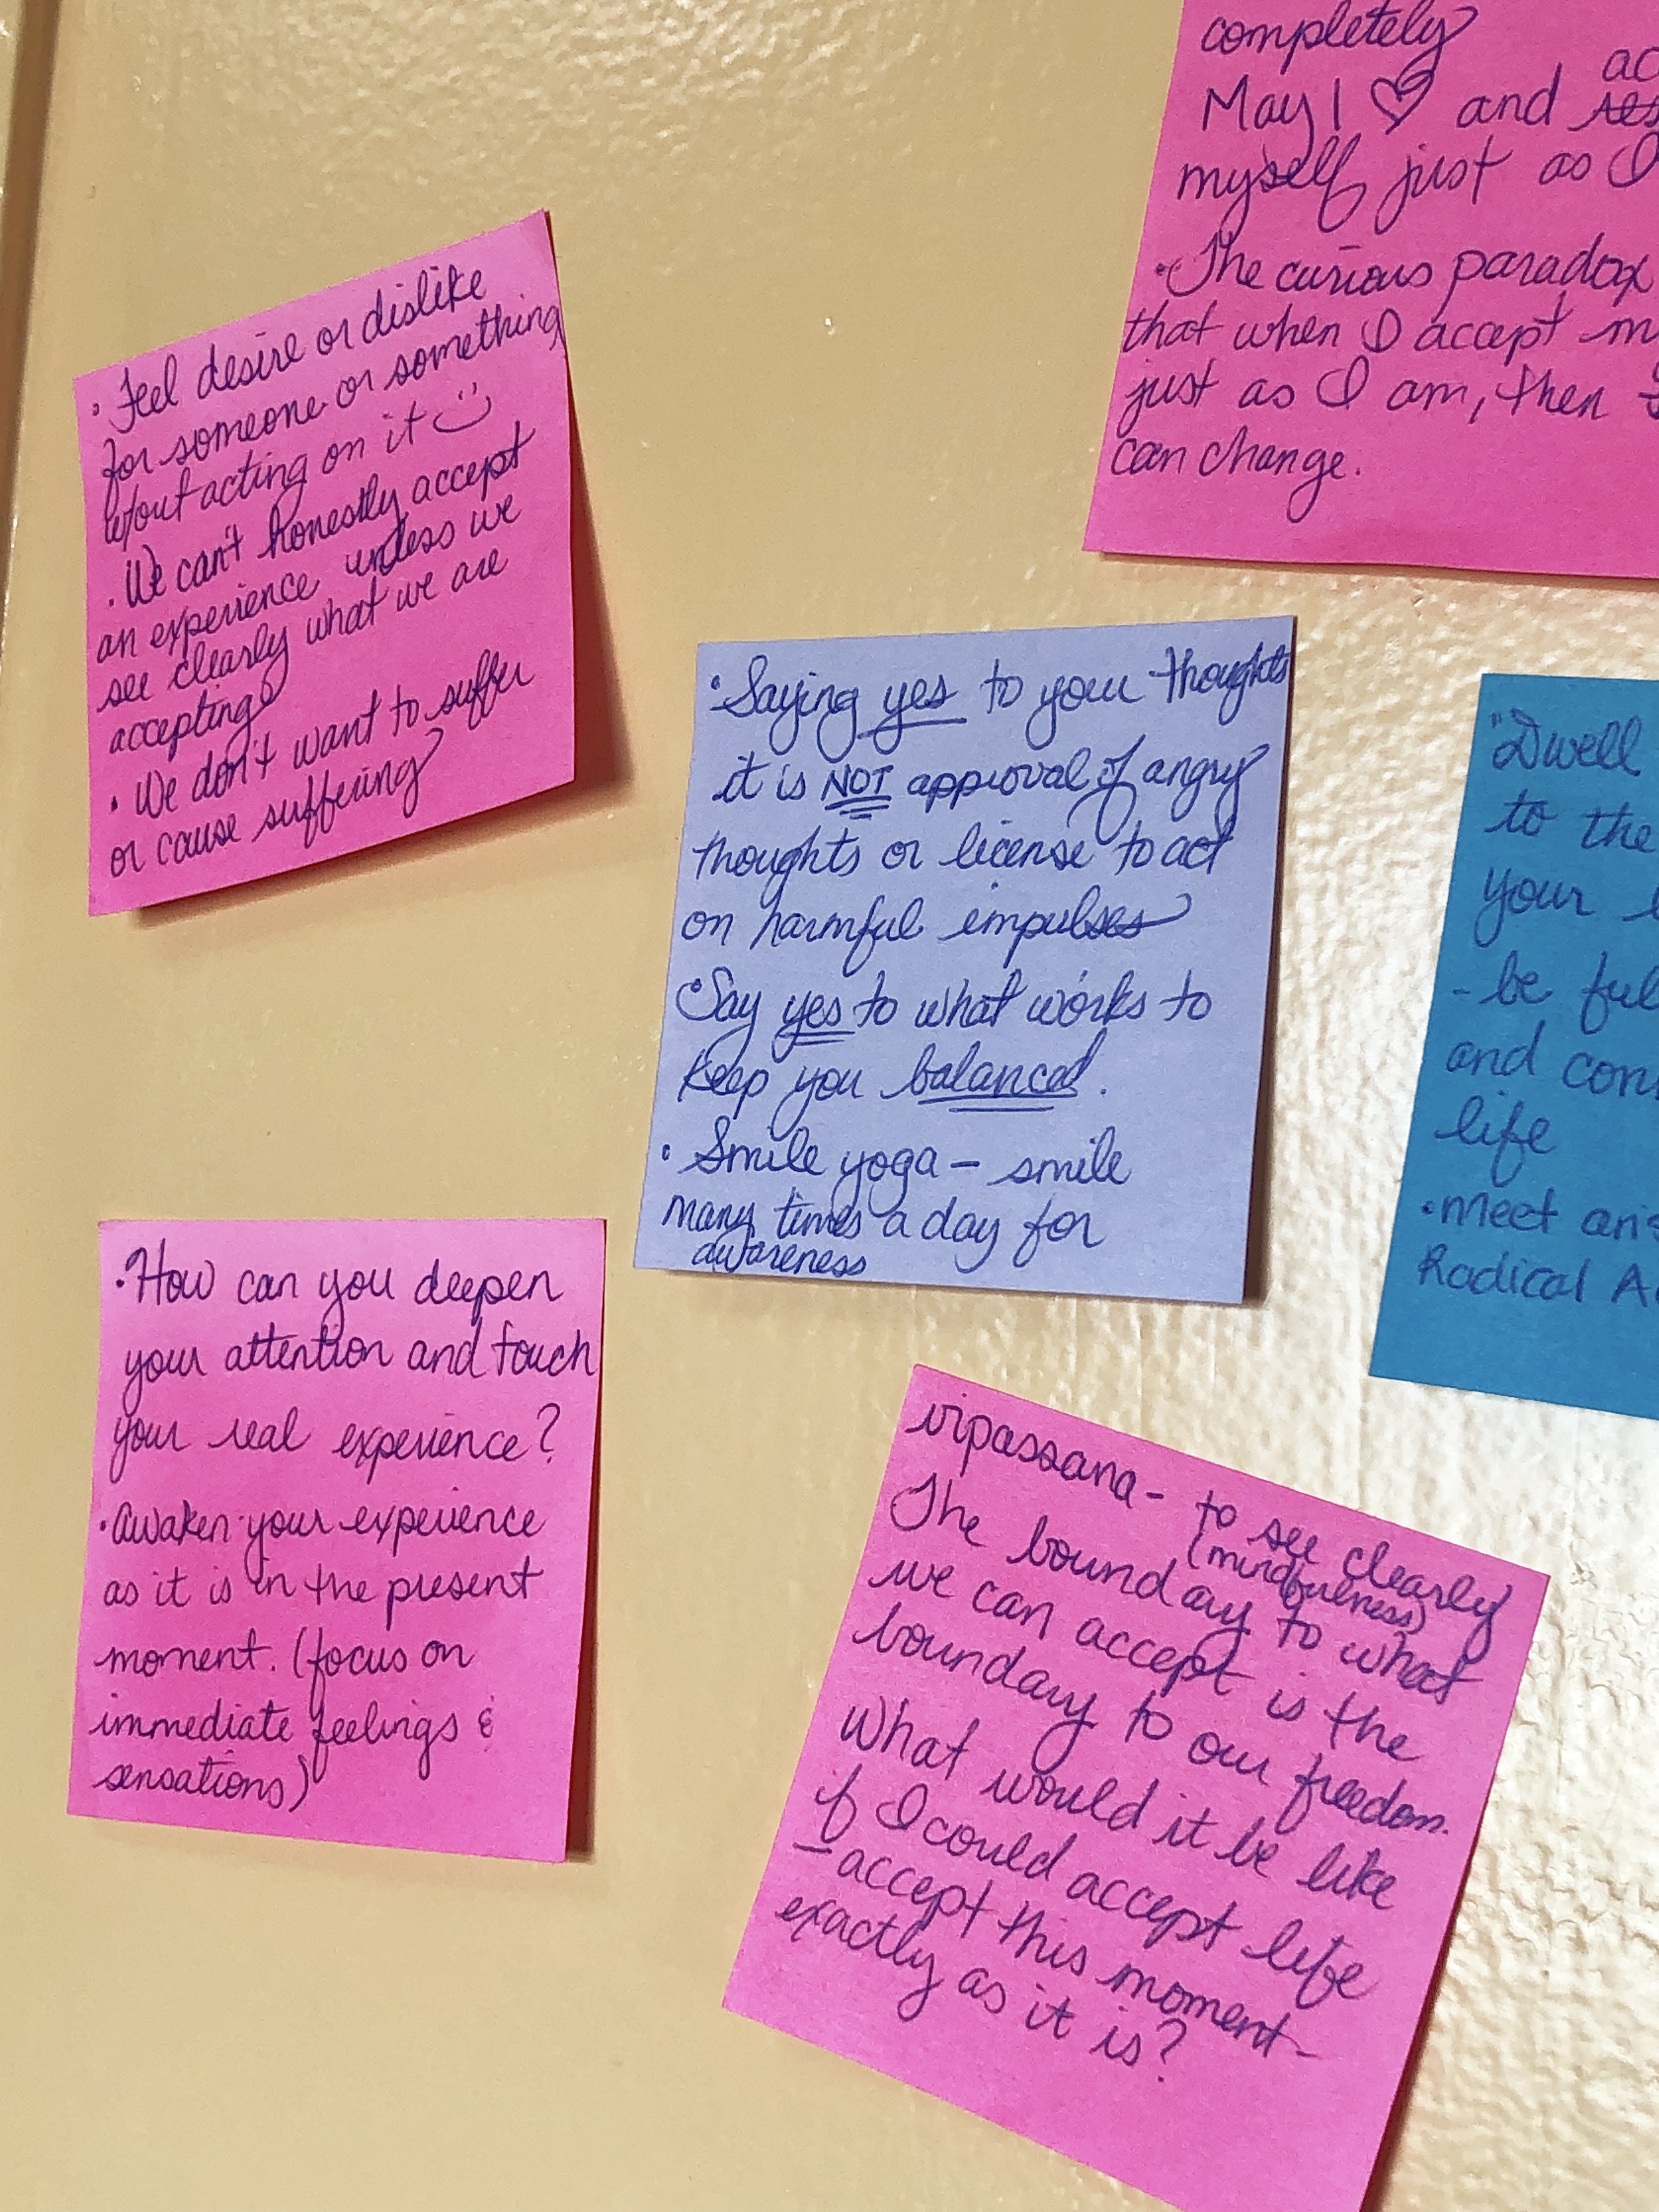 completely
May I ♡ and
myself just as I
• The curious paradox
that when I accept
just as I am, then
can change.
• Feel desire or dislike
for someone or something
w/out acting on it :)
• We can't honestly accept
an experience unless we
see clearly what we are
accepting
• We don't want to suffer
or cause suffering
• Saying yes to your thoughts
it is NOT approval of angry
thoughts or license to act
on harmful impulses
• Say yes to what works to
keep you balanced.
• Smile yoga – smile
many times a day for
awareness
"Dwell
to the
your
- be
and
life
• meet
Radical
• How can you deepen
your attention and touch
your real experience?
• Awaken your experience
as it is in the present
moment. (focus on
immediate feelings &
sensations)
vipassana - to see clearly
(mindfulness)
The boundary to what
we can accept is the
boundary to our freedom.
What would it be like
if I could accept life
– accept this moment –
exactly as it is?